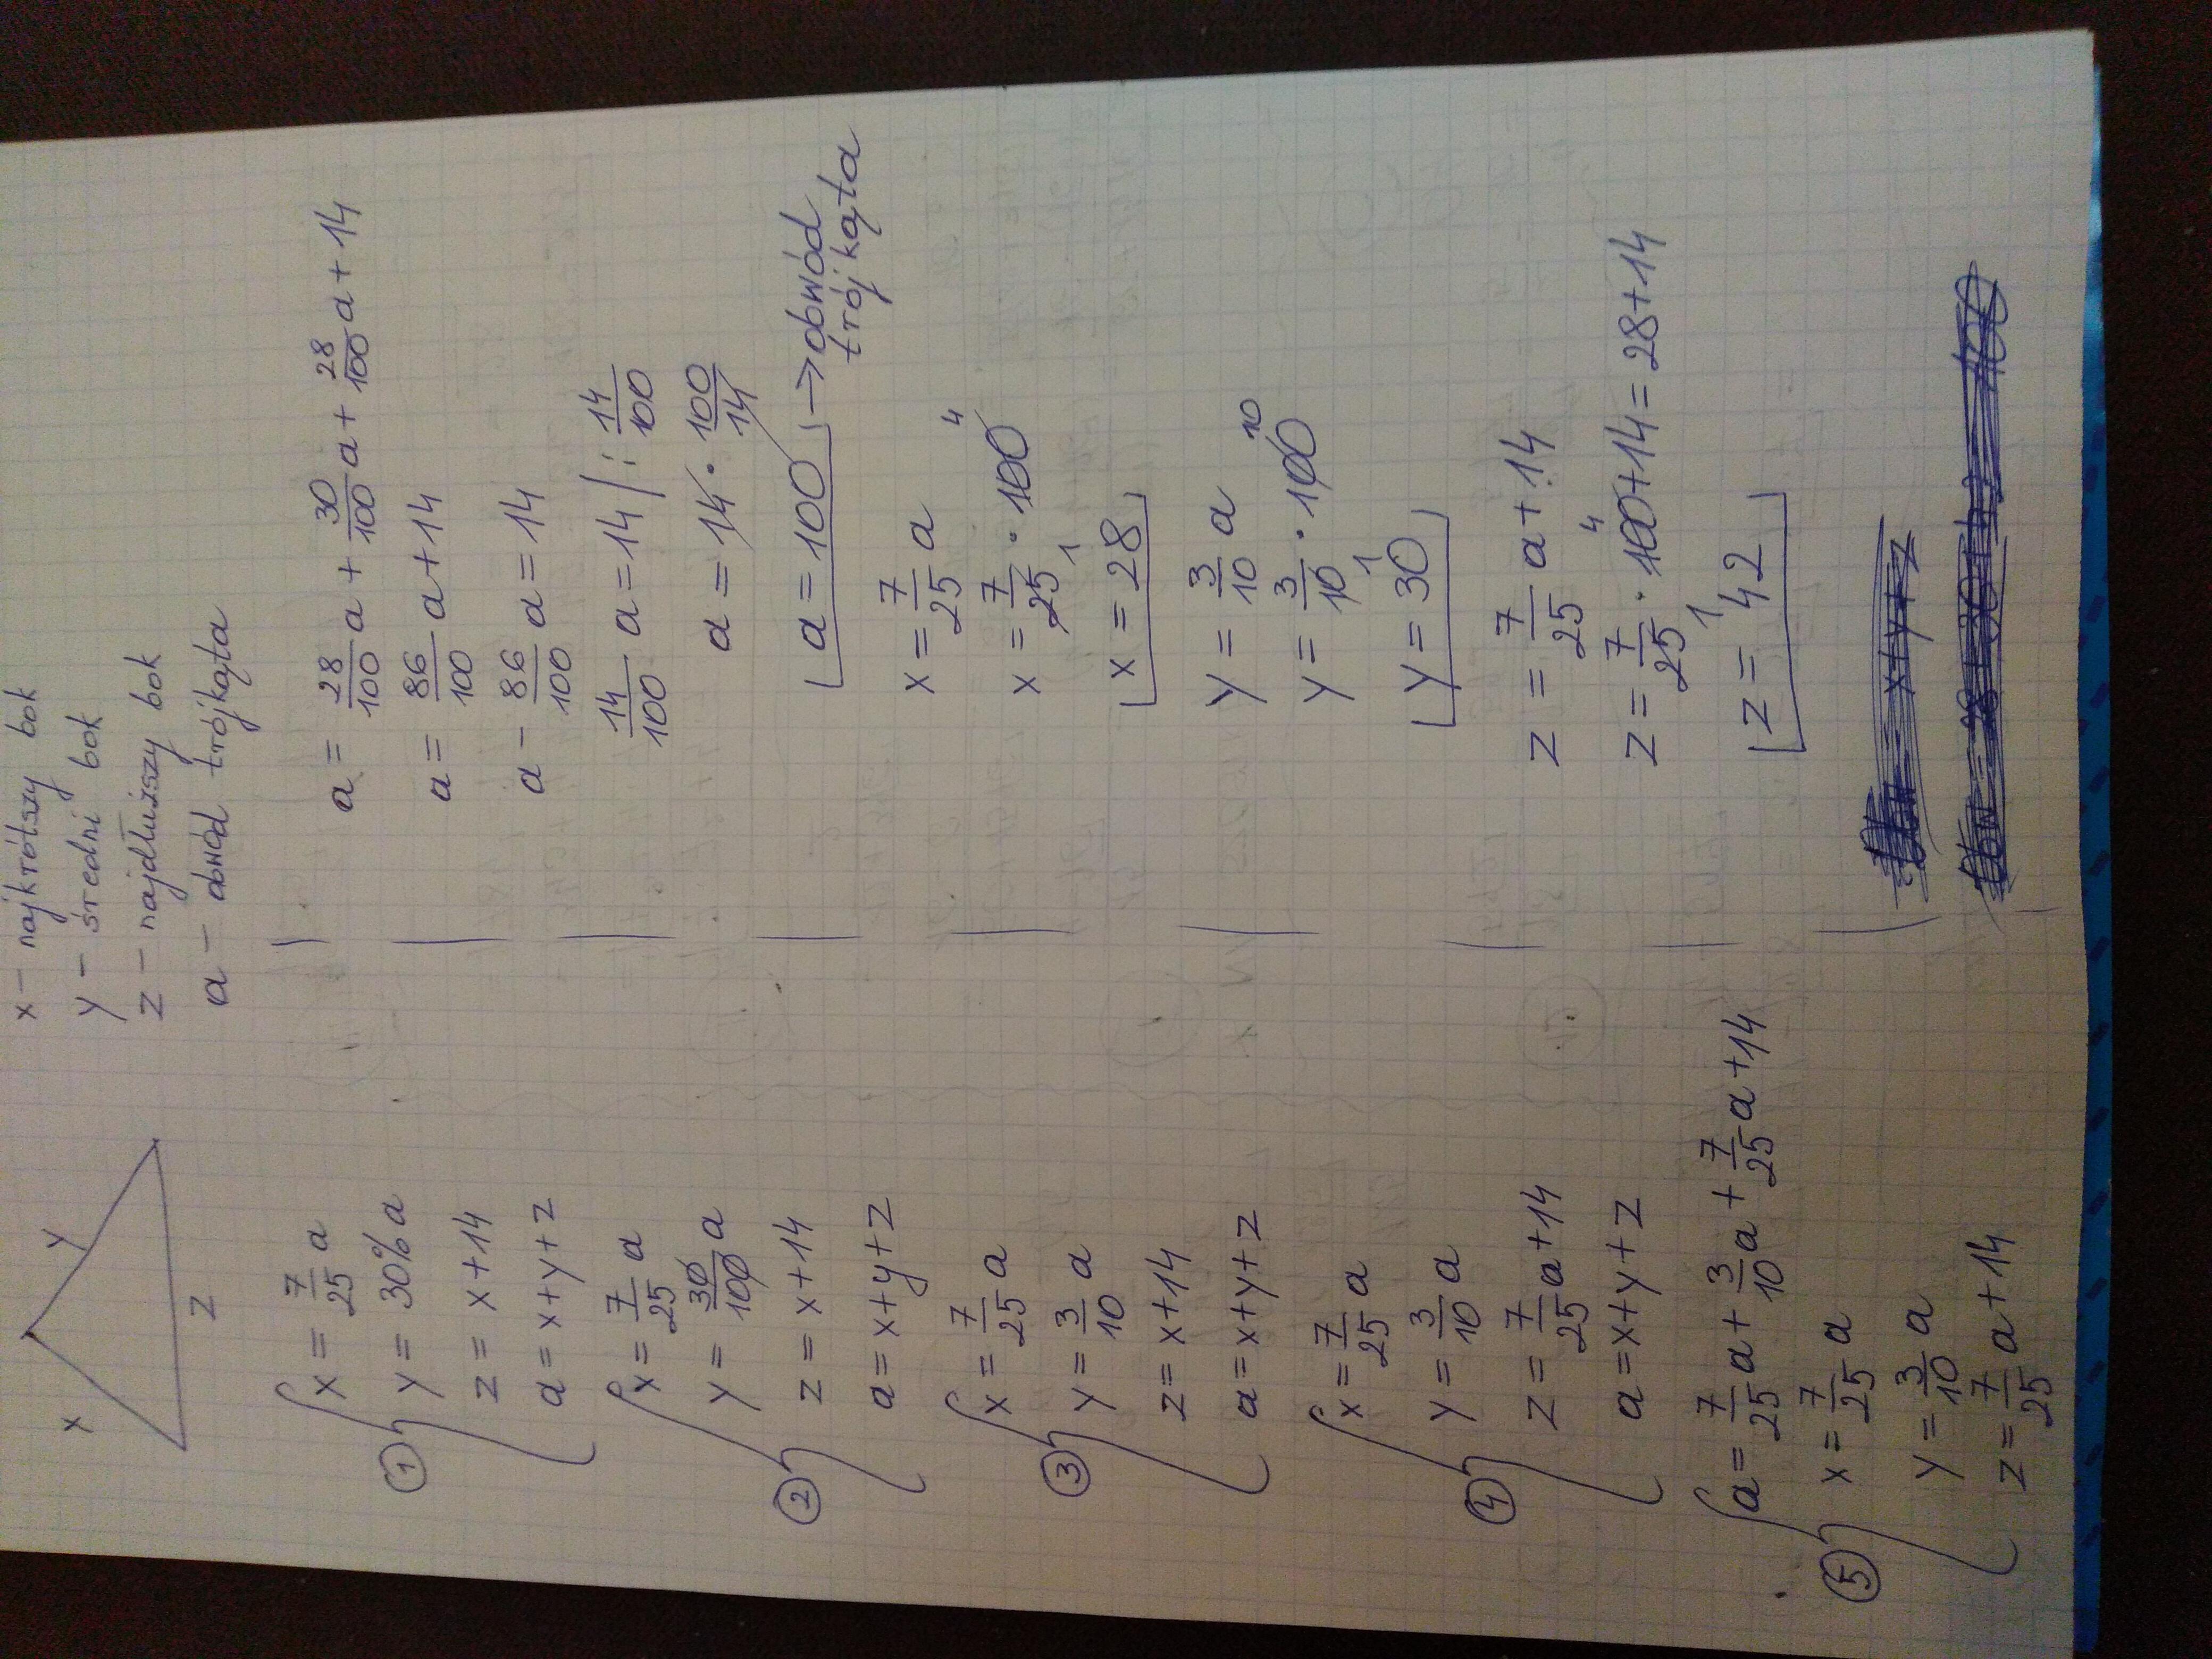 x y z
x – najkrótszy bok
y – średni bok
z – najdłuższy bok
a – obwód trójkąta
① x = 7/25 a
y = 30% a
z = x+14
a = x+y+z
② x = 7/25 a
y = 30/100 a
z = x+14
a = x+y+z
③ x = 7/25 a
y = 3/10 a
z = x+14
a = x+y+z
④ x = 7/25 a
y = 3/10 a
z = 7/25 a+14
a = x+y+z
⑤ a = 7/25 a + 3/10 a + 7/25 a + 14
x = 7/25 a
y = 3/10 a
z = 7/25 a + 14
a = 28/100 a + 30/100 a + 28/100 a + 14
a = 86/100 a + 14
a – 86/100 a = 14
14/100 a = 14 | : 14/100
a = 14 · 100/14
a = 100 → obwód
trójkąta
x = 7/25 a
x = 7/25 · 100 4
1
x = 28
y = 3/10 a
y = 3/10 · 100 10
1
y = 30
z = 7/25 a + 14
z = 7/25 · 100 + 14 = 28+14
1 4
z = 42